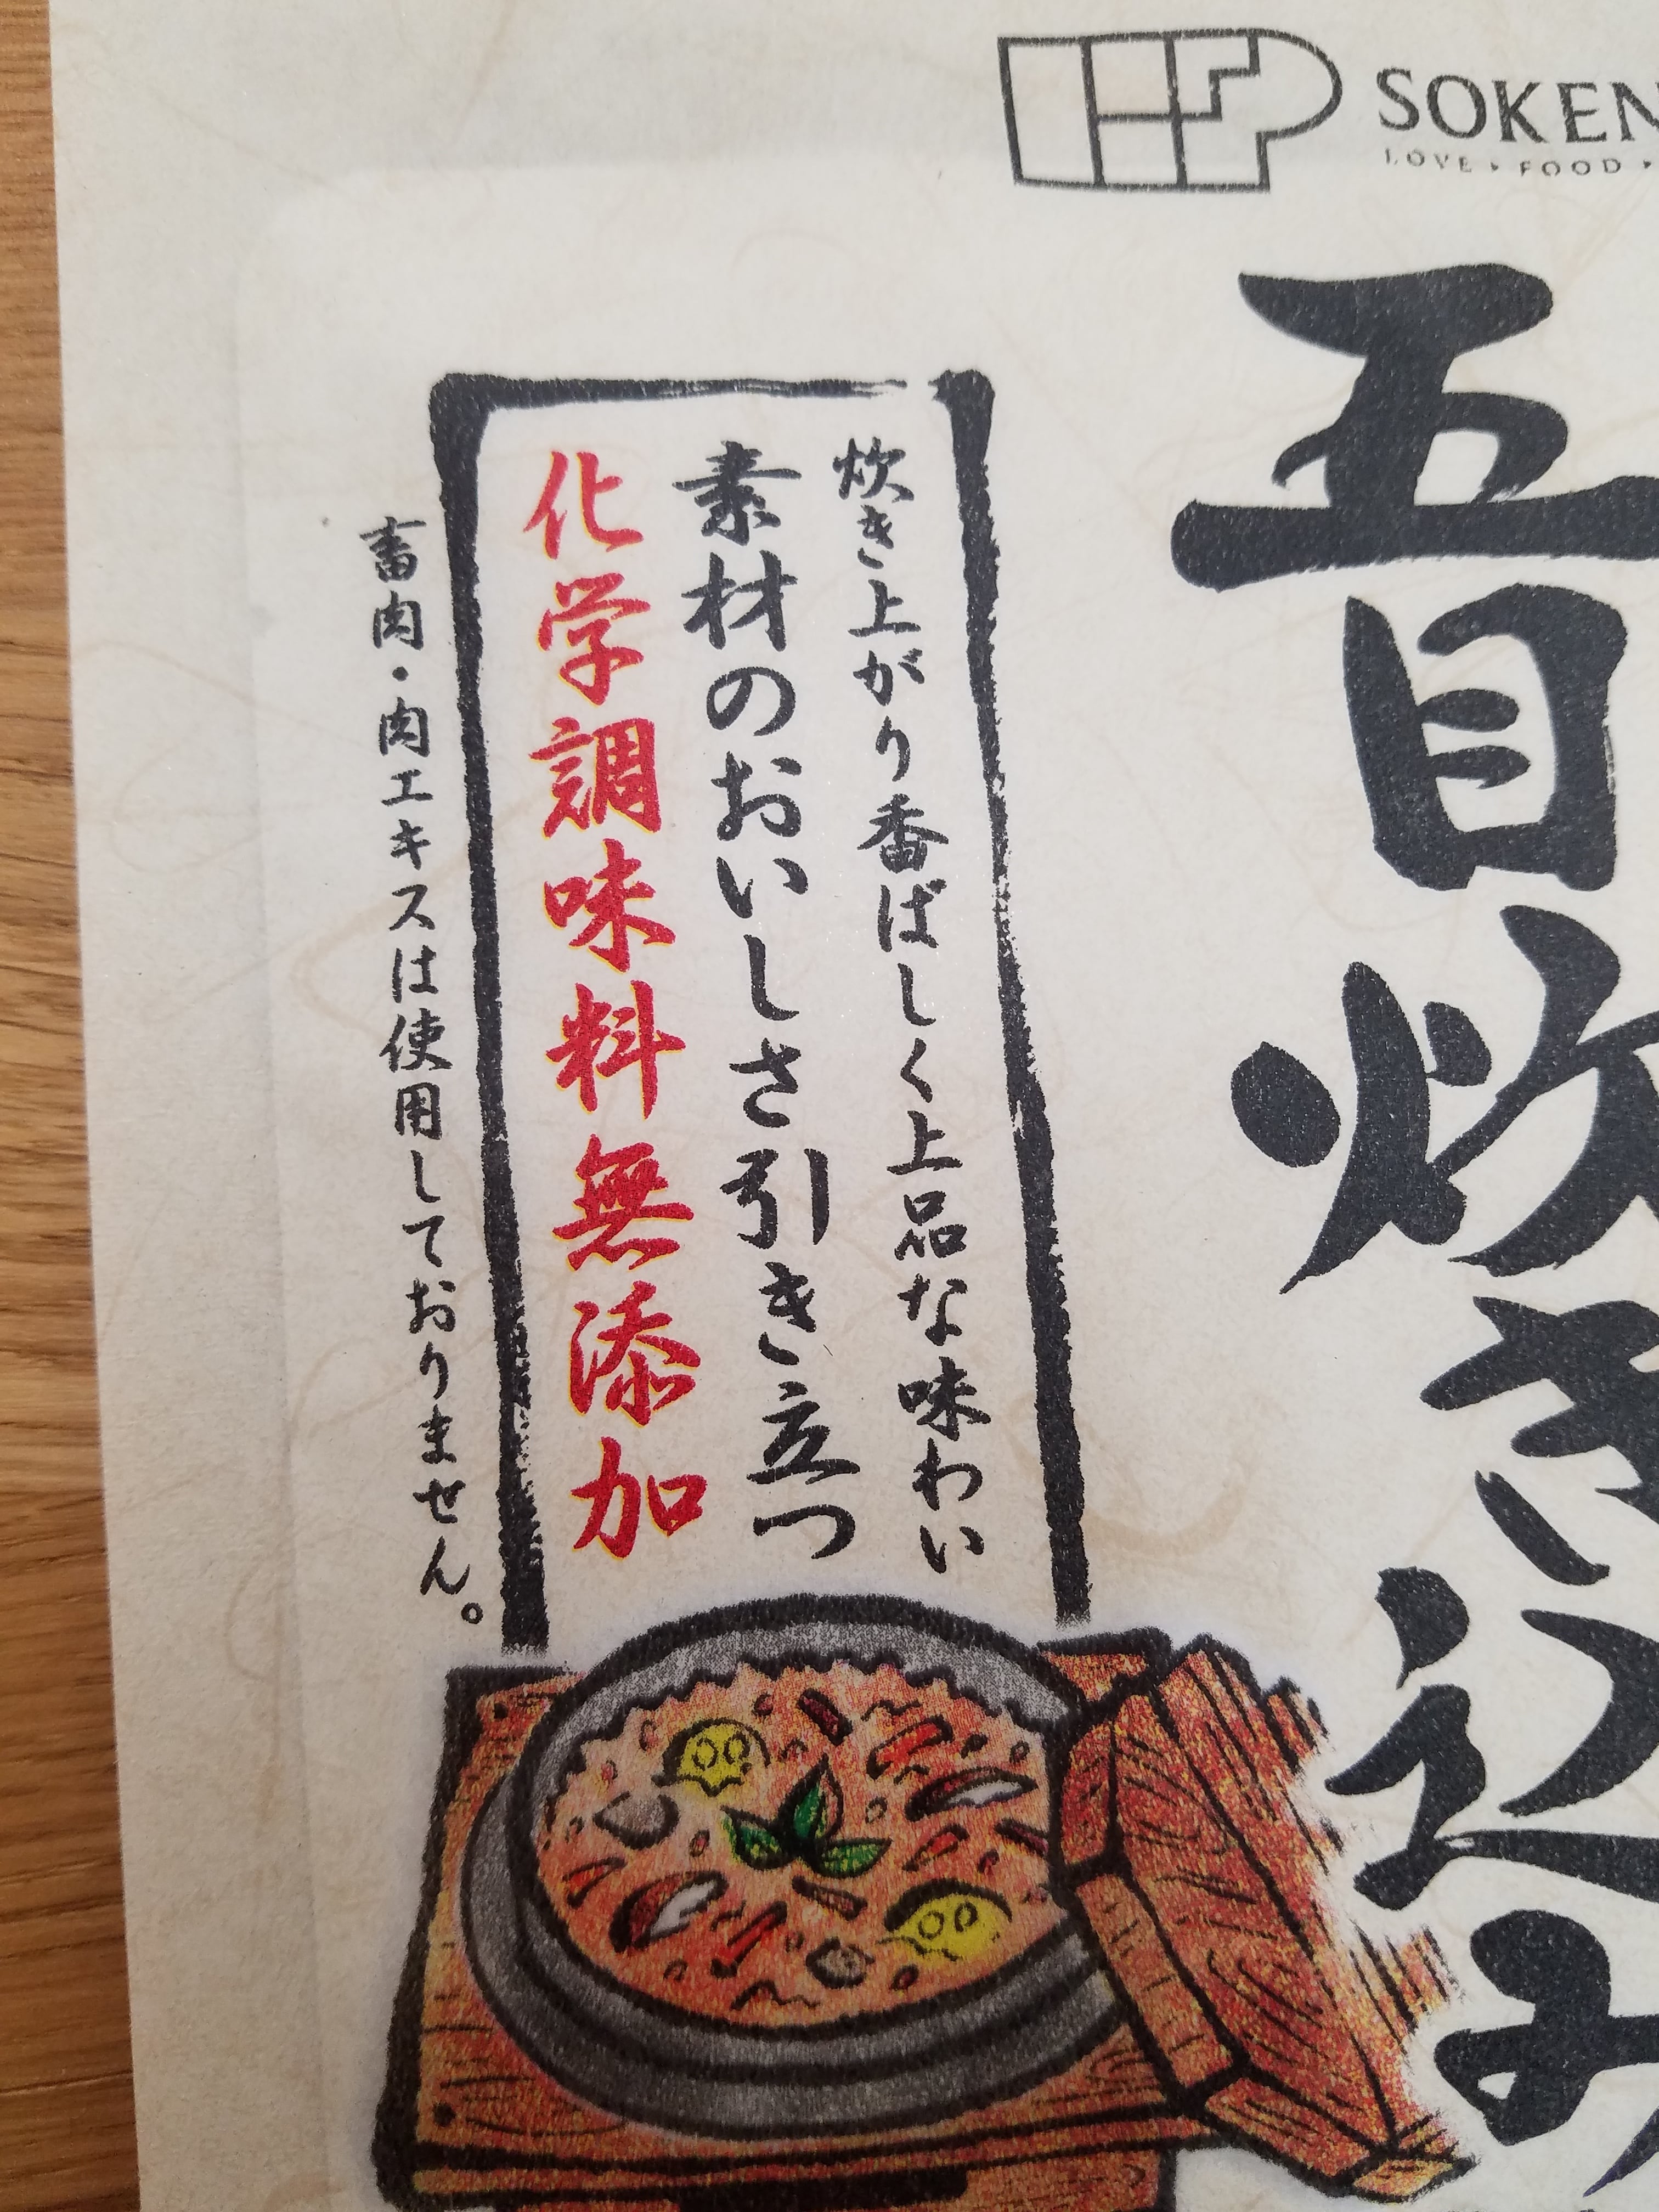 SOKEN
LOVE・FOOD・
五目炊き込み
炊き上がり香ばしく上品な味わい
素材のおいしさ引き立つ
化学調味料無添加
畜肉・肉エキスは使用しておりません。